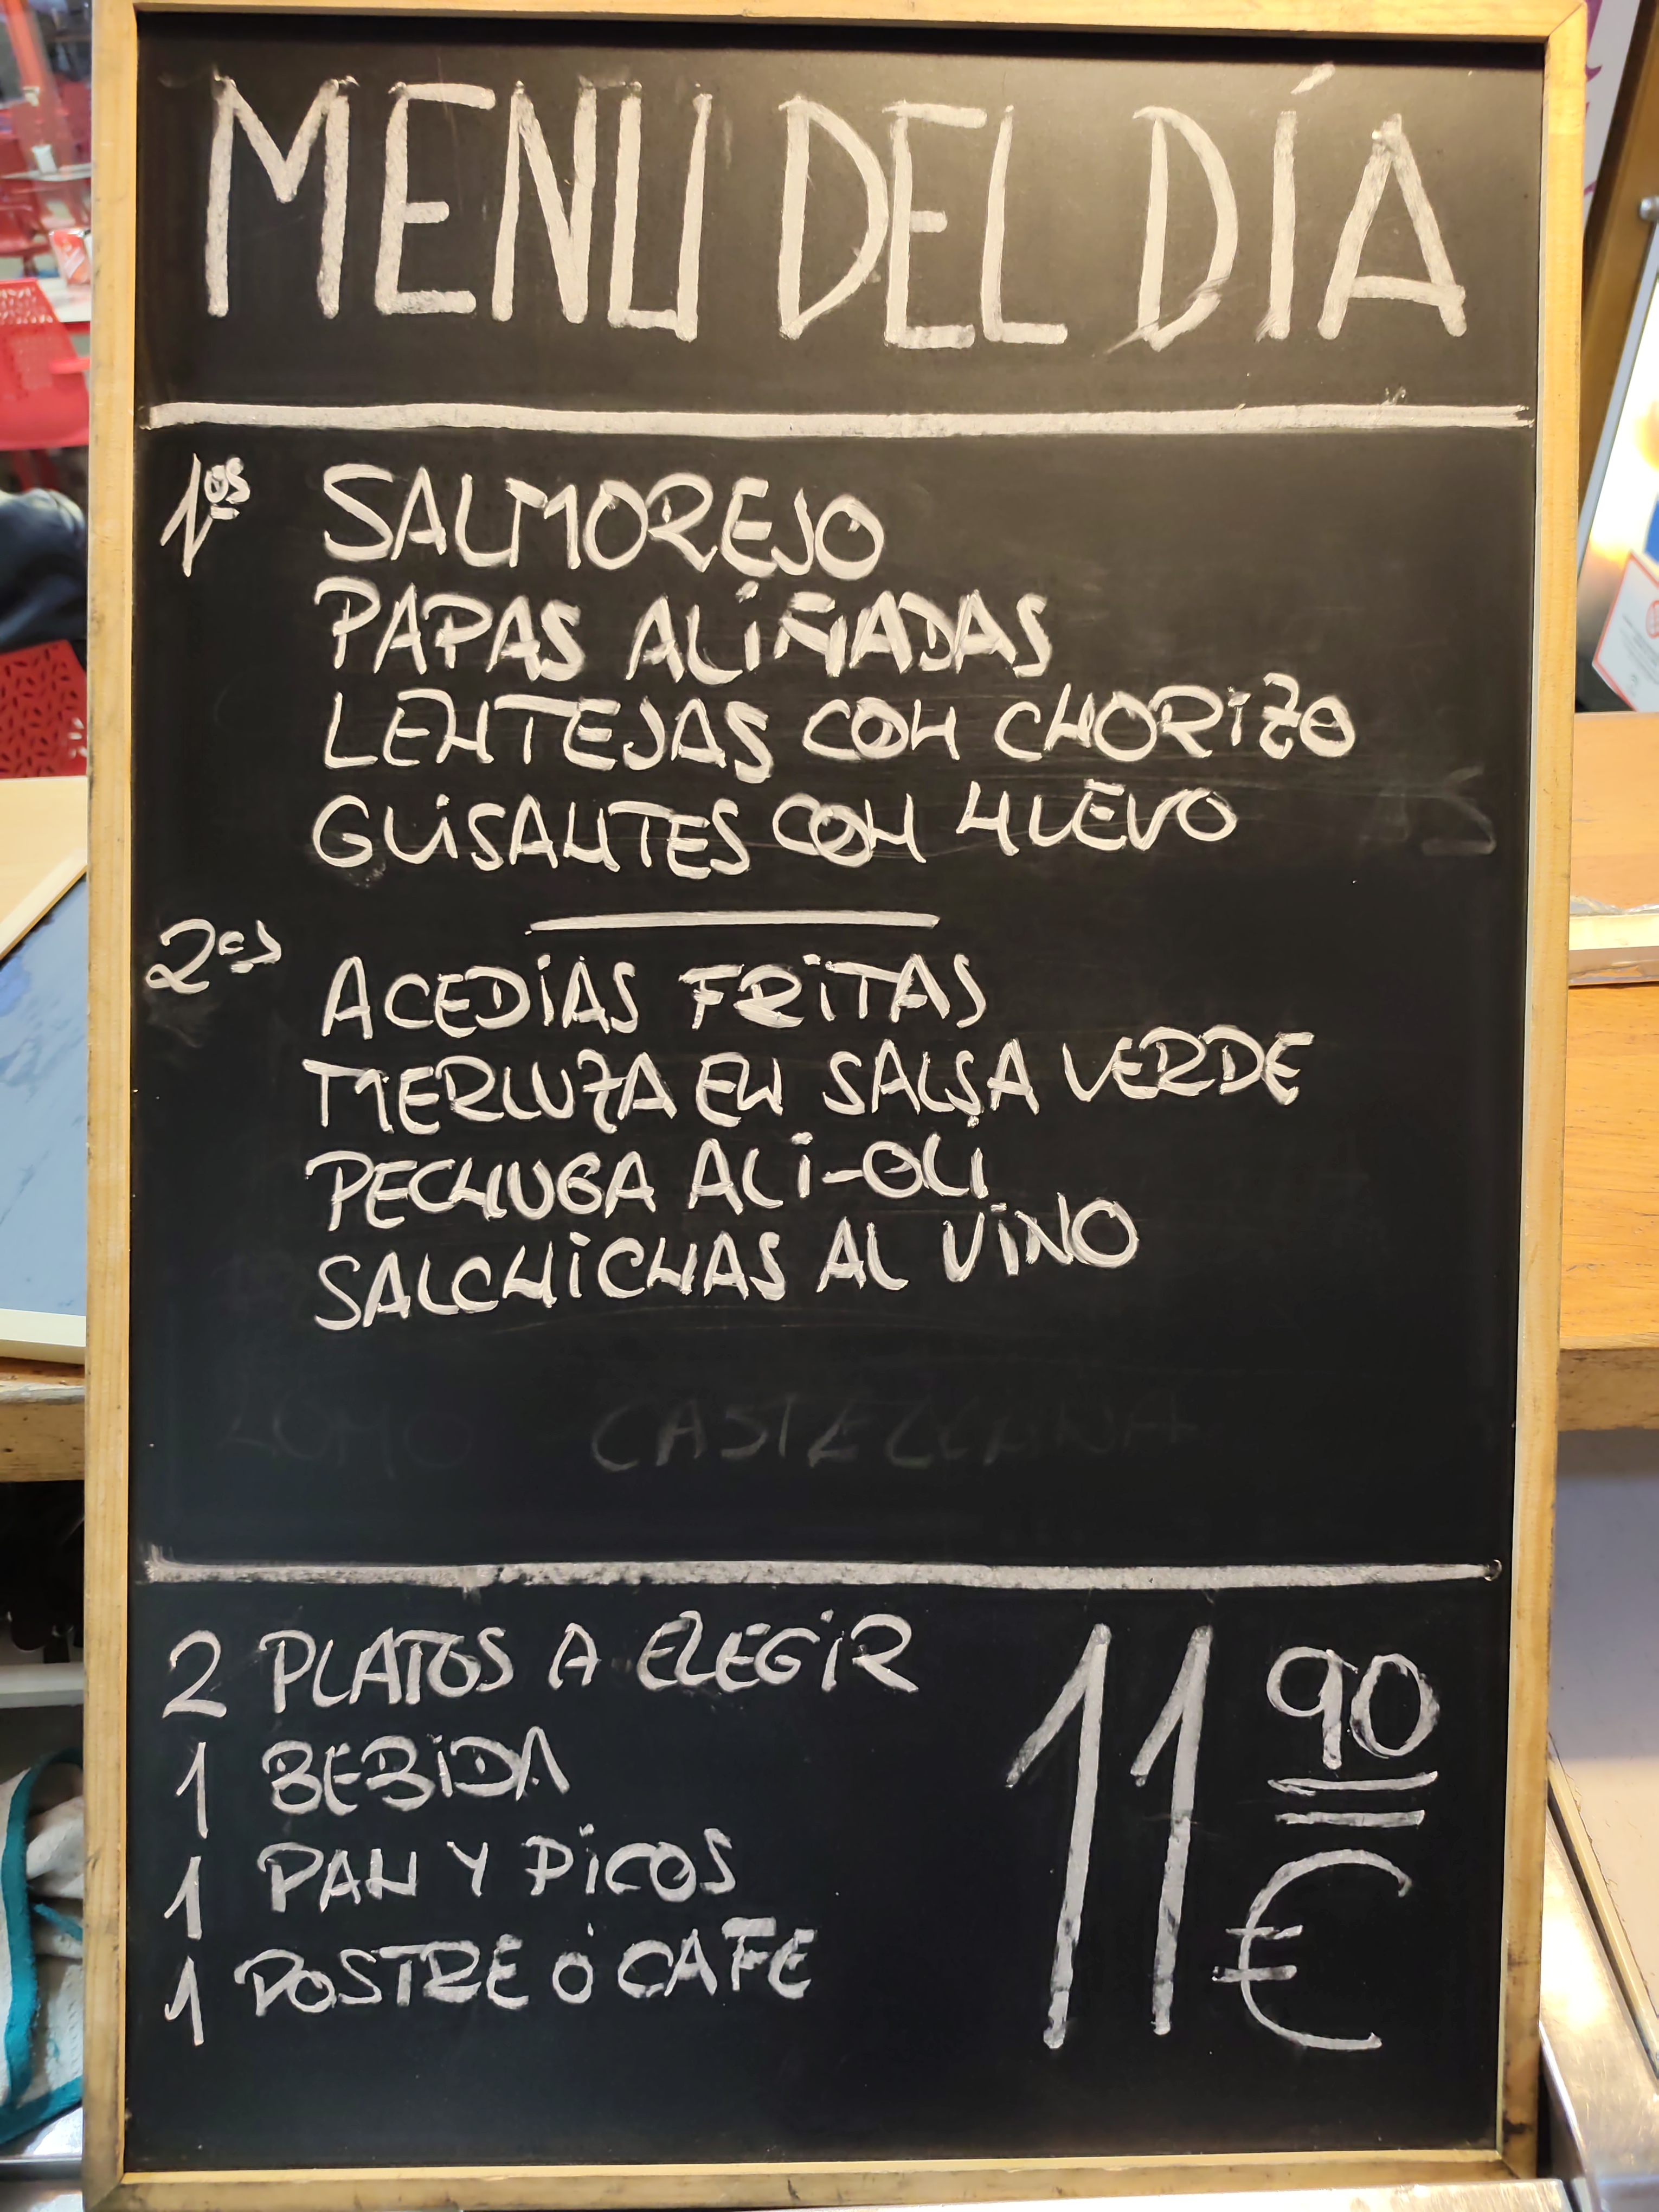 MENU DEL DÍA
1os SALMOREJO
PAPAS ALIÑADAS
LENTEJAS CON CHORIZO
GUISANTES CON HUEVO
2os
ACEDIAS FRITAS
MERLUZA EN SALSA VERDE
PECHUGA ALI-OLI
SALCHICHAS AL VINO
LOMO CASTELLANA
2 PLATOS A ELEGIR
1 BEBIDA
1 PAN Y PICOS
1 POSTRE Ó CAFE
11 90 €